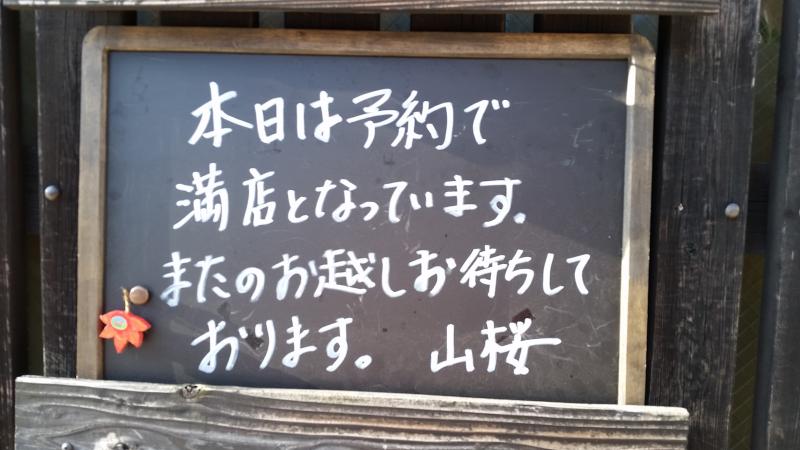 本日は予約で
満店となっています。
またのお越しお待ちして
おります。 山桜